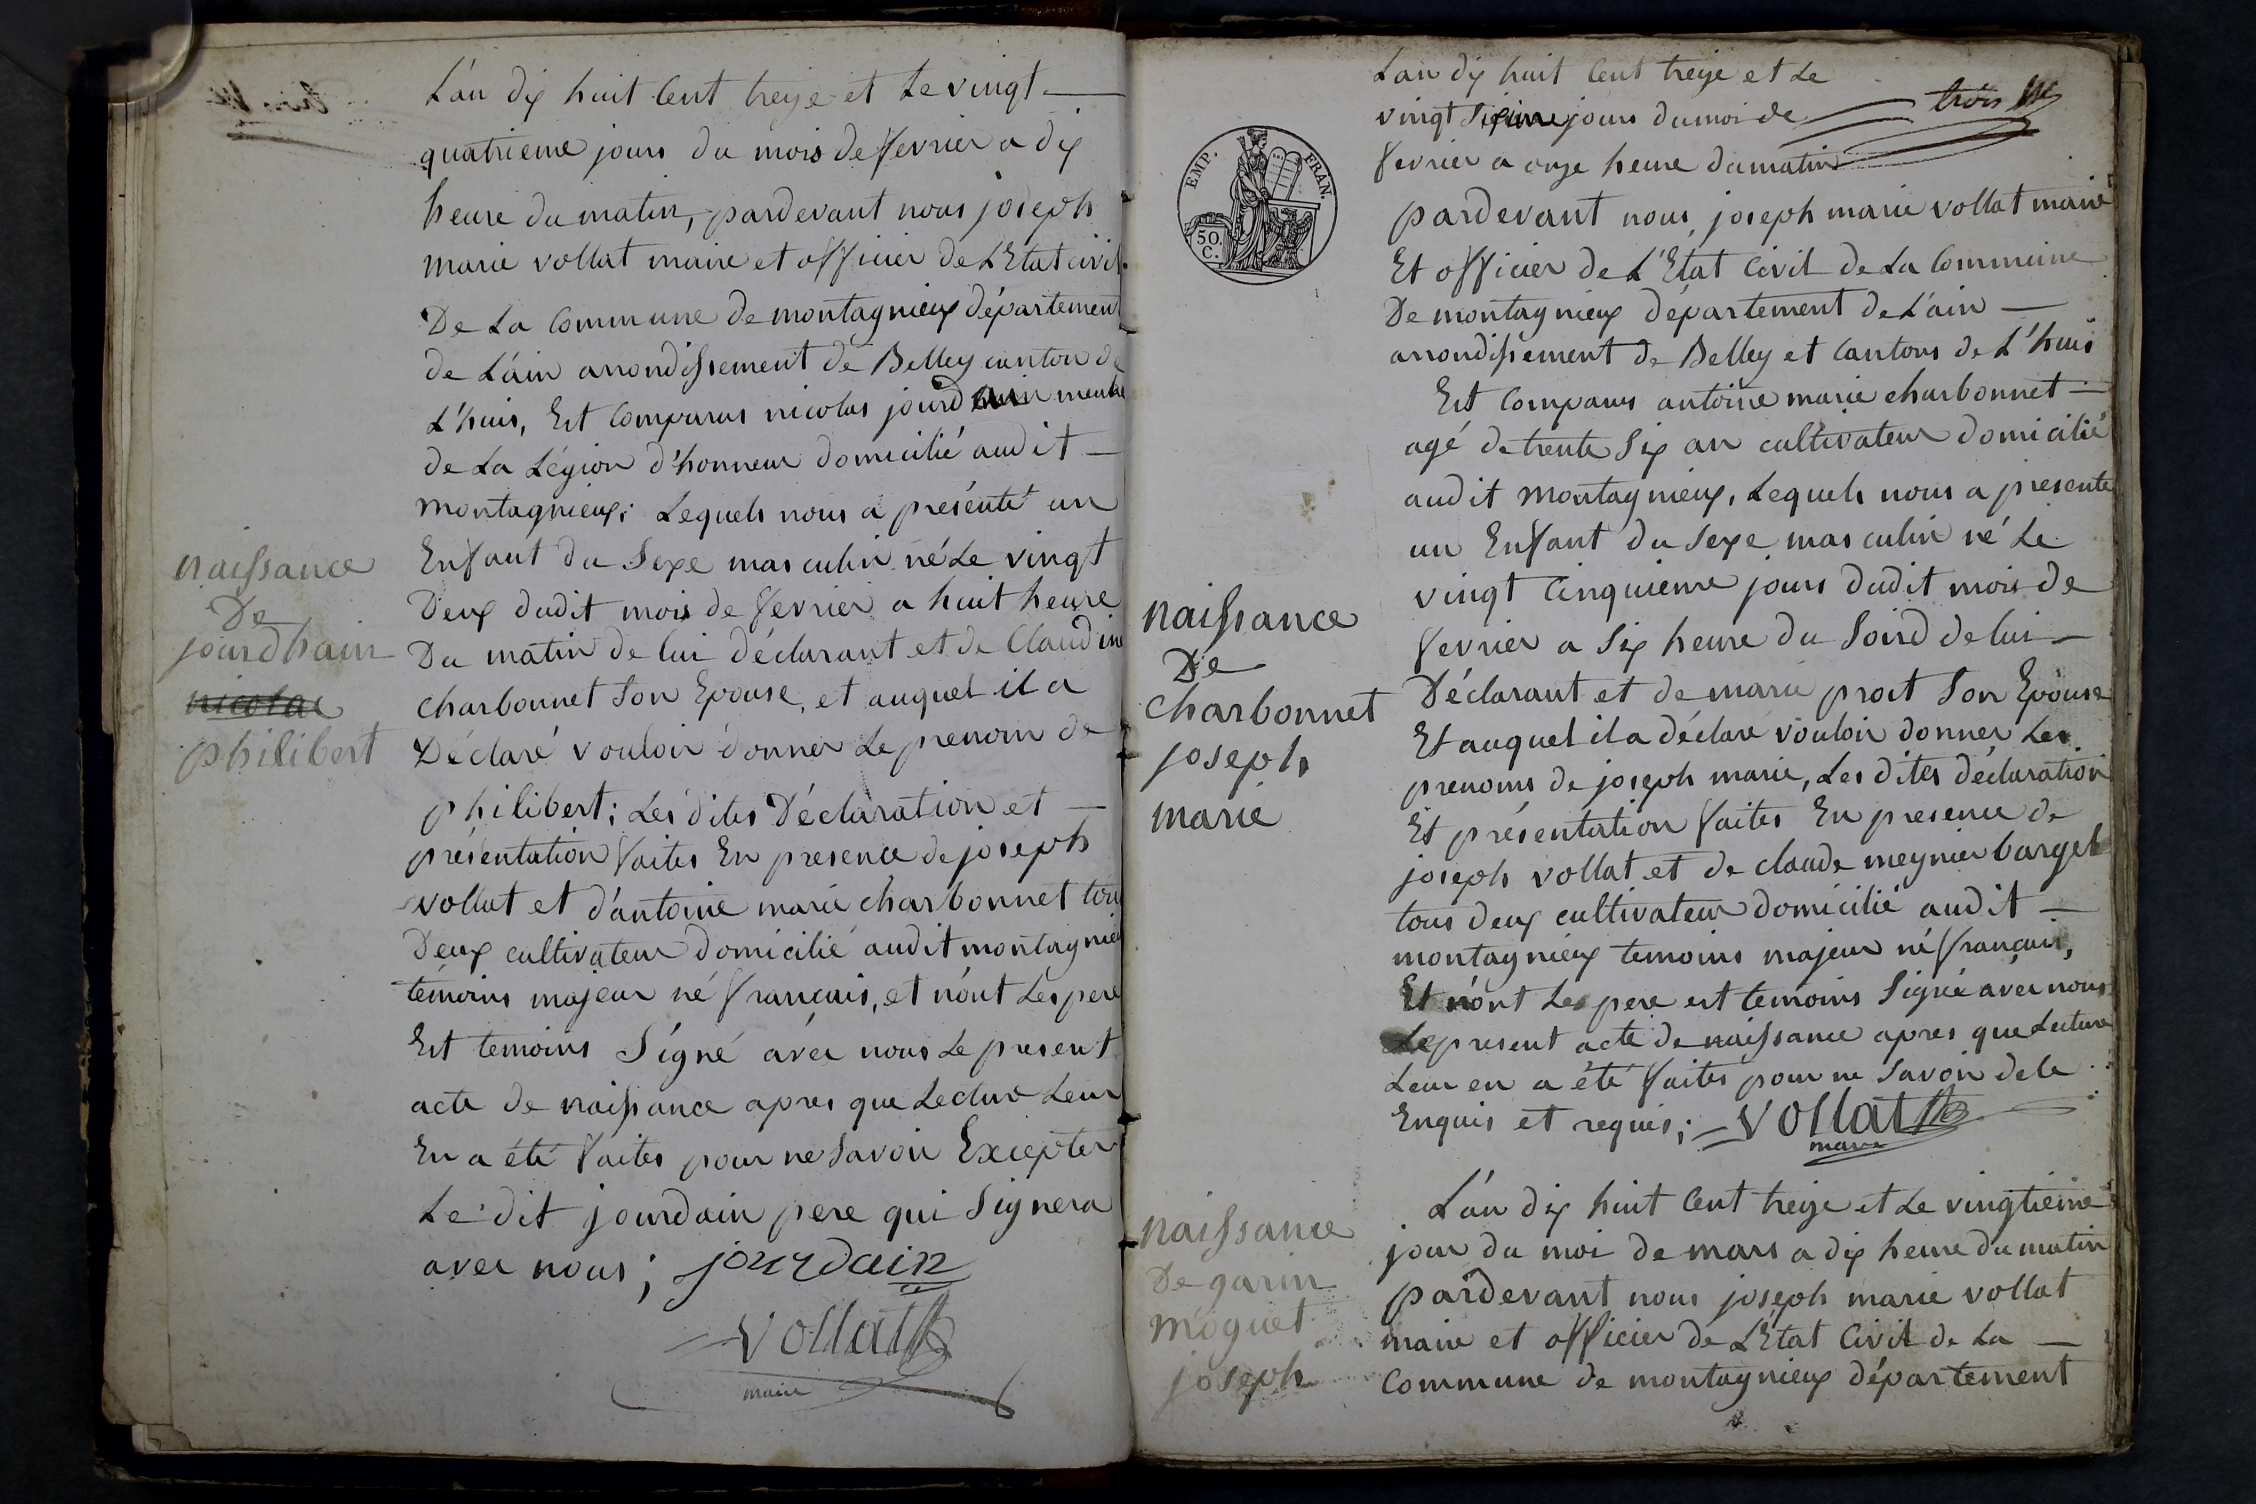 L'an dix huit Cent treize et Le vingt
quatrieme jours du mois de fevrier a dix
heure du matin, pardevant nous joseph
marie vollat maire et officier de L'Etat civil
De La Commune de montagnieux département
de L'ain arrondissement de Belley canton de
L'huis, Est Comparus nicolas jourdain membre
de La Légion d'honneur domicilié audit
montagnieux; Lequels nous a présenté un
Enfant du Sexe masculin né Le vingt
Deux dudit mois de fevrier a huit heure
Du matin de lui déclarant et de Claudine
charbonnet Son Epouse, et auquel il a
Déclaré vouloir donner Le prenom de
philibert; Les dites Déclaration et
présentation faites En presence de joseph
vollat et d'antoine marie charbonnet tous
Deux cultivateur domicilié audit montagnieux
témoins majeur né français, et n'ont Les pere
Est temoins Signé avec nous Le present
acte de naissance apres que Lecture Leur
En a été faites pour ne Savoir Excepter
Le dit jourdain pere qui Signera
avec nous; jourdain
vollat
maire
naissance
De
jourdhain
nicolas
philibert
L'an dix huit Cent treize et Le
vingt Sixieme jours du moi de
fevrier a onze heure du matin
trois
EMP. FRAN.
50.
C.
pardevant nous joseph marie vollat maire
Et officier de L'Etat Civil de La Commune
De montagnieux département de L'ain
arrondissement de Belley et Cantons de L'huis
Est Comparus antoine marie charbonnet
agé de trente Six an cultivateur domicilié
audit montagnieux, Lequels nous a présenté
un Enfant du Sexe masculin né Le
vingt Cinquieme jours dudit mois de
fevrier a Six heure du Soird de lui
Déclarant et de marie proit Son Epouse
Et auquel il a déclaré vouloir donner Les
prenoms de joseph marie, Les dites déclaration
Et présentation faites En presence de
joseph vollat et de claude meynier barget
tous deux cultivateur domicilié audit
montagnieux temoins majeur né français,
Et n'ont Les pere est temoins Signé avec nous
Le present acte de naissance apres que Lecture
Leur en a été faites pour ne Savoir de ce
Enquis et requis; vollat
maire
naissance
De
charbonnet
joseph
marie
L'an dix huit Cent treize et Le vingtieme
jour du moi de mars a dix heure du matin
pardevant nous joseph marie vollat
maire et officier de L'Etat Civil de La
Commune de montagnieux département
naissance
De garin
moguet
joseph